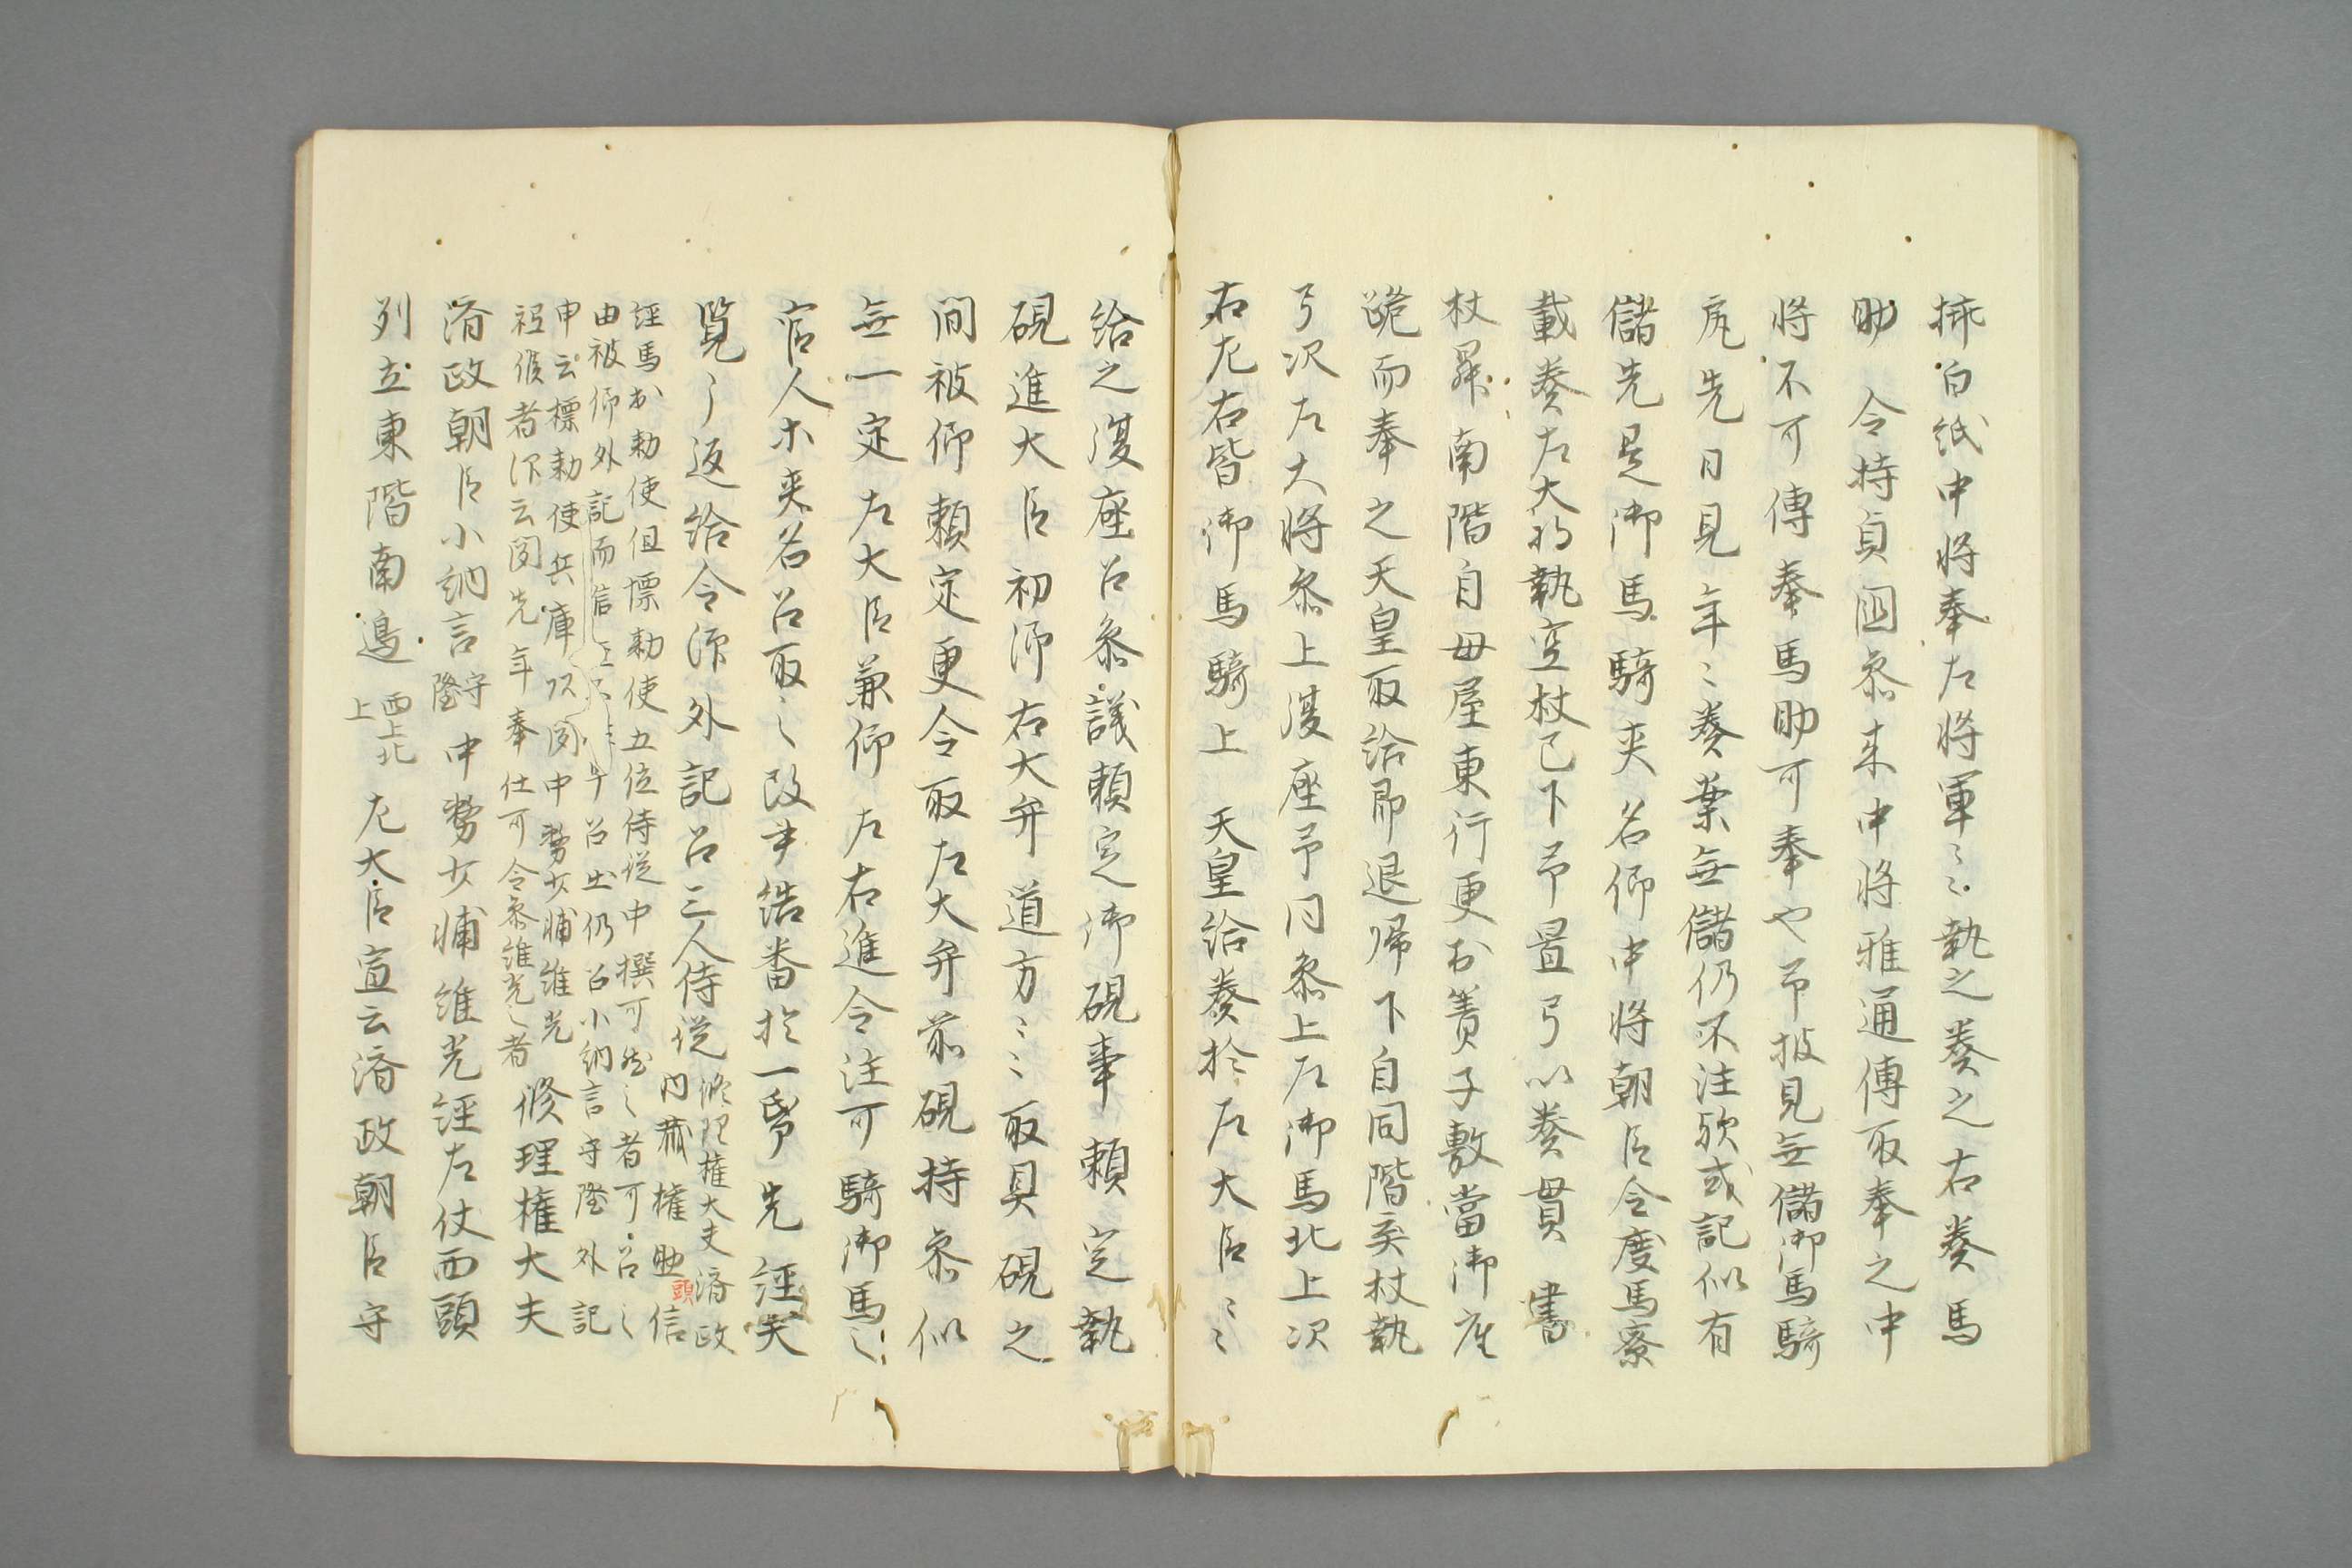 挿白紙中将奉左将軍〻〻執之奏之右奏馬
助　令持貞國参来中将雅通傳取奉之中
将不可傳奉馬助可奉也而披見無儲御馬騎
尻先日見年〻奏案無儲仍不注歟或記似有
儲先是御馬騎夾名仰中将朝臣令度馬寮
載奏左大将執空杖已下而置弓以奏貫書
杖昇南階自母屋東行更於簀子敷當御座
跪而奉之天皇取給即退帰下自同階奏杖執
弓次左大将参上復座而同参上左御馬北上次
右左右皆御馬騎上　天皇給奏於左大臣〻〻
給之復座召参議頼定御硯事頼定執
硯進大臣初仰右大弁道方〻〻取具硯之
間被仰頼定更令取左大弁前硯持参似
無一定左大臣兼仰左右進令注可騎御馬之
官人木夾名召取之改手結番於一帋先諲夾
覧了返給令源外記召三人侍従修理権大夫済政
内蔵権助頭信
諲馬出勅使但標勅使五位侍従中撰可然之者可召之
由被仰外記而信
午召出仍召小納言守隆外記
申云標勅使兵庫
中務少輔維光
祗候者仰云関先年奉仕可令参維光者
修理権大夫
済政朝臣小納言守隆中務少輔維光諲左仗西頭
列立東階南邊西上北上左大臣宣云済政朝臣守